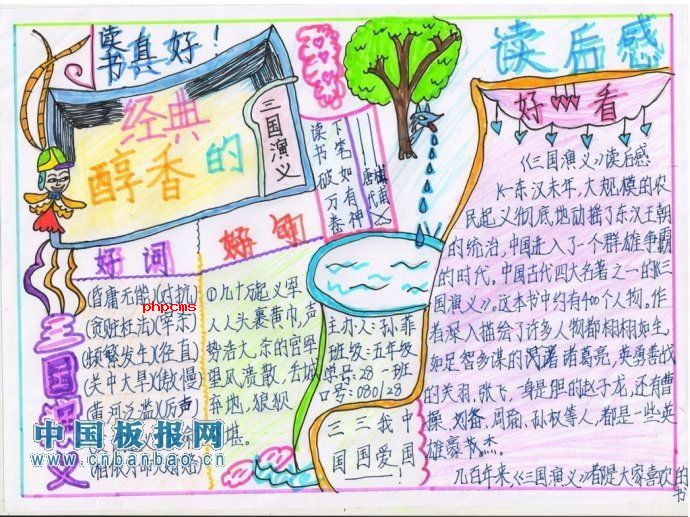 读书真好！
经典
醇香的
三国演义
读书破万卷
下笔如有神
唐代
读后感
好看
《三国演义》读后感
东汉末年，大规模的农
民起义彻底地动摇了东汉王朝
的统治，中国进入了一个群雄争霸
的时代。中国古代四大名著之一的《三
国演义》。这本书中约有400个人物。作
者深入描绘了许多人物都栩栩如生。
如足智多谋的诸葛亮，英勇善战
的关羽、张飞，一身是胆的赵子龙，还有曹
操、刘备、周瑜、孙权等人，都是一些英
雄豪杰。
几百年来《三国演义》都是大家喜欢的
书
好词
(昏庸无能)(对抗)
(贪赃枉法)(牢东)
(频繁发生)(径直)
(关中大旱)(傲慢)
(黄河之滥)(厉声)
好句
①九十万起义军
人人头裹黄巾，声
势浩大，东的官军
望风溃散，丢城
弃地，狼狈
堪。
主办人：孙菲
班级：五年级
学号：28一班
口号：080128
三三我中
国国爱国
三国演义
phpcms
中国板报网
www.cnbanbao.cn